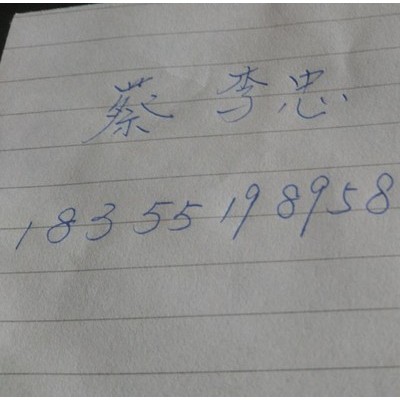 蔡 李忠
18355198958